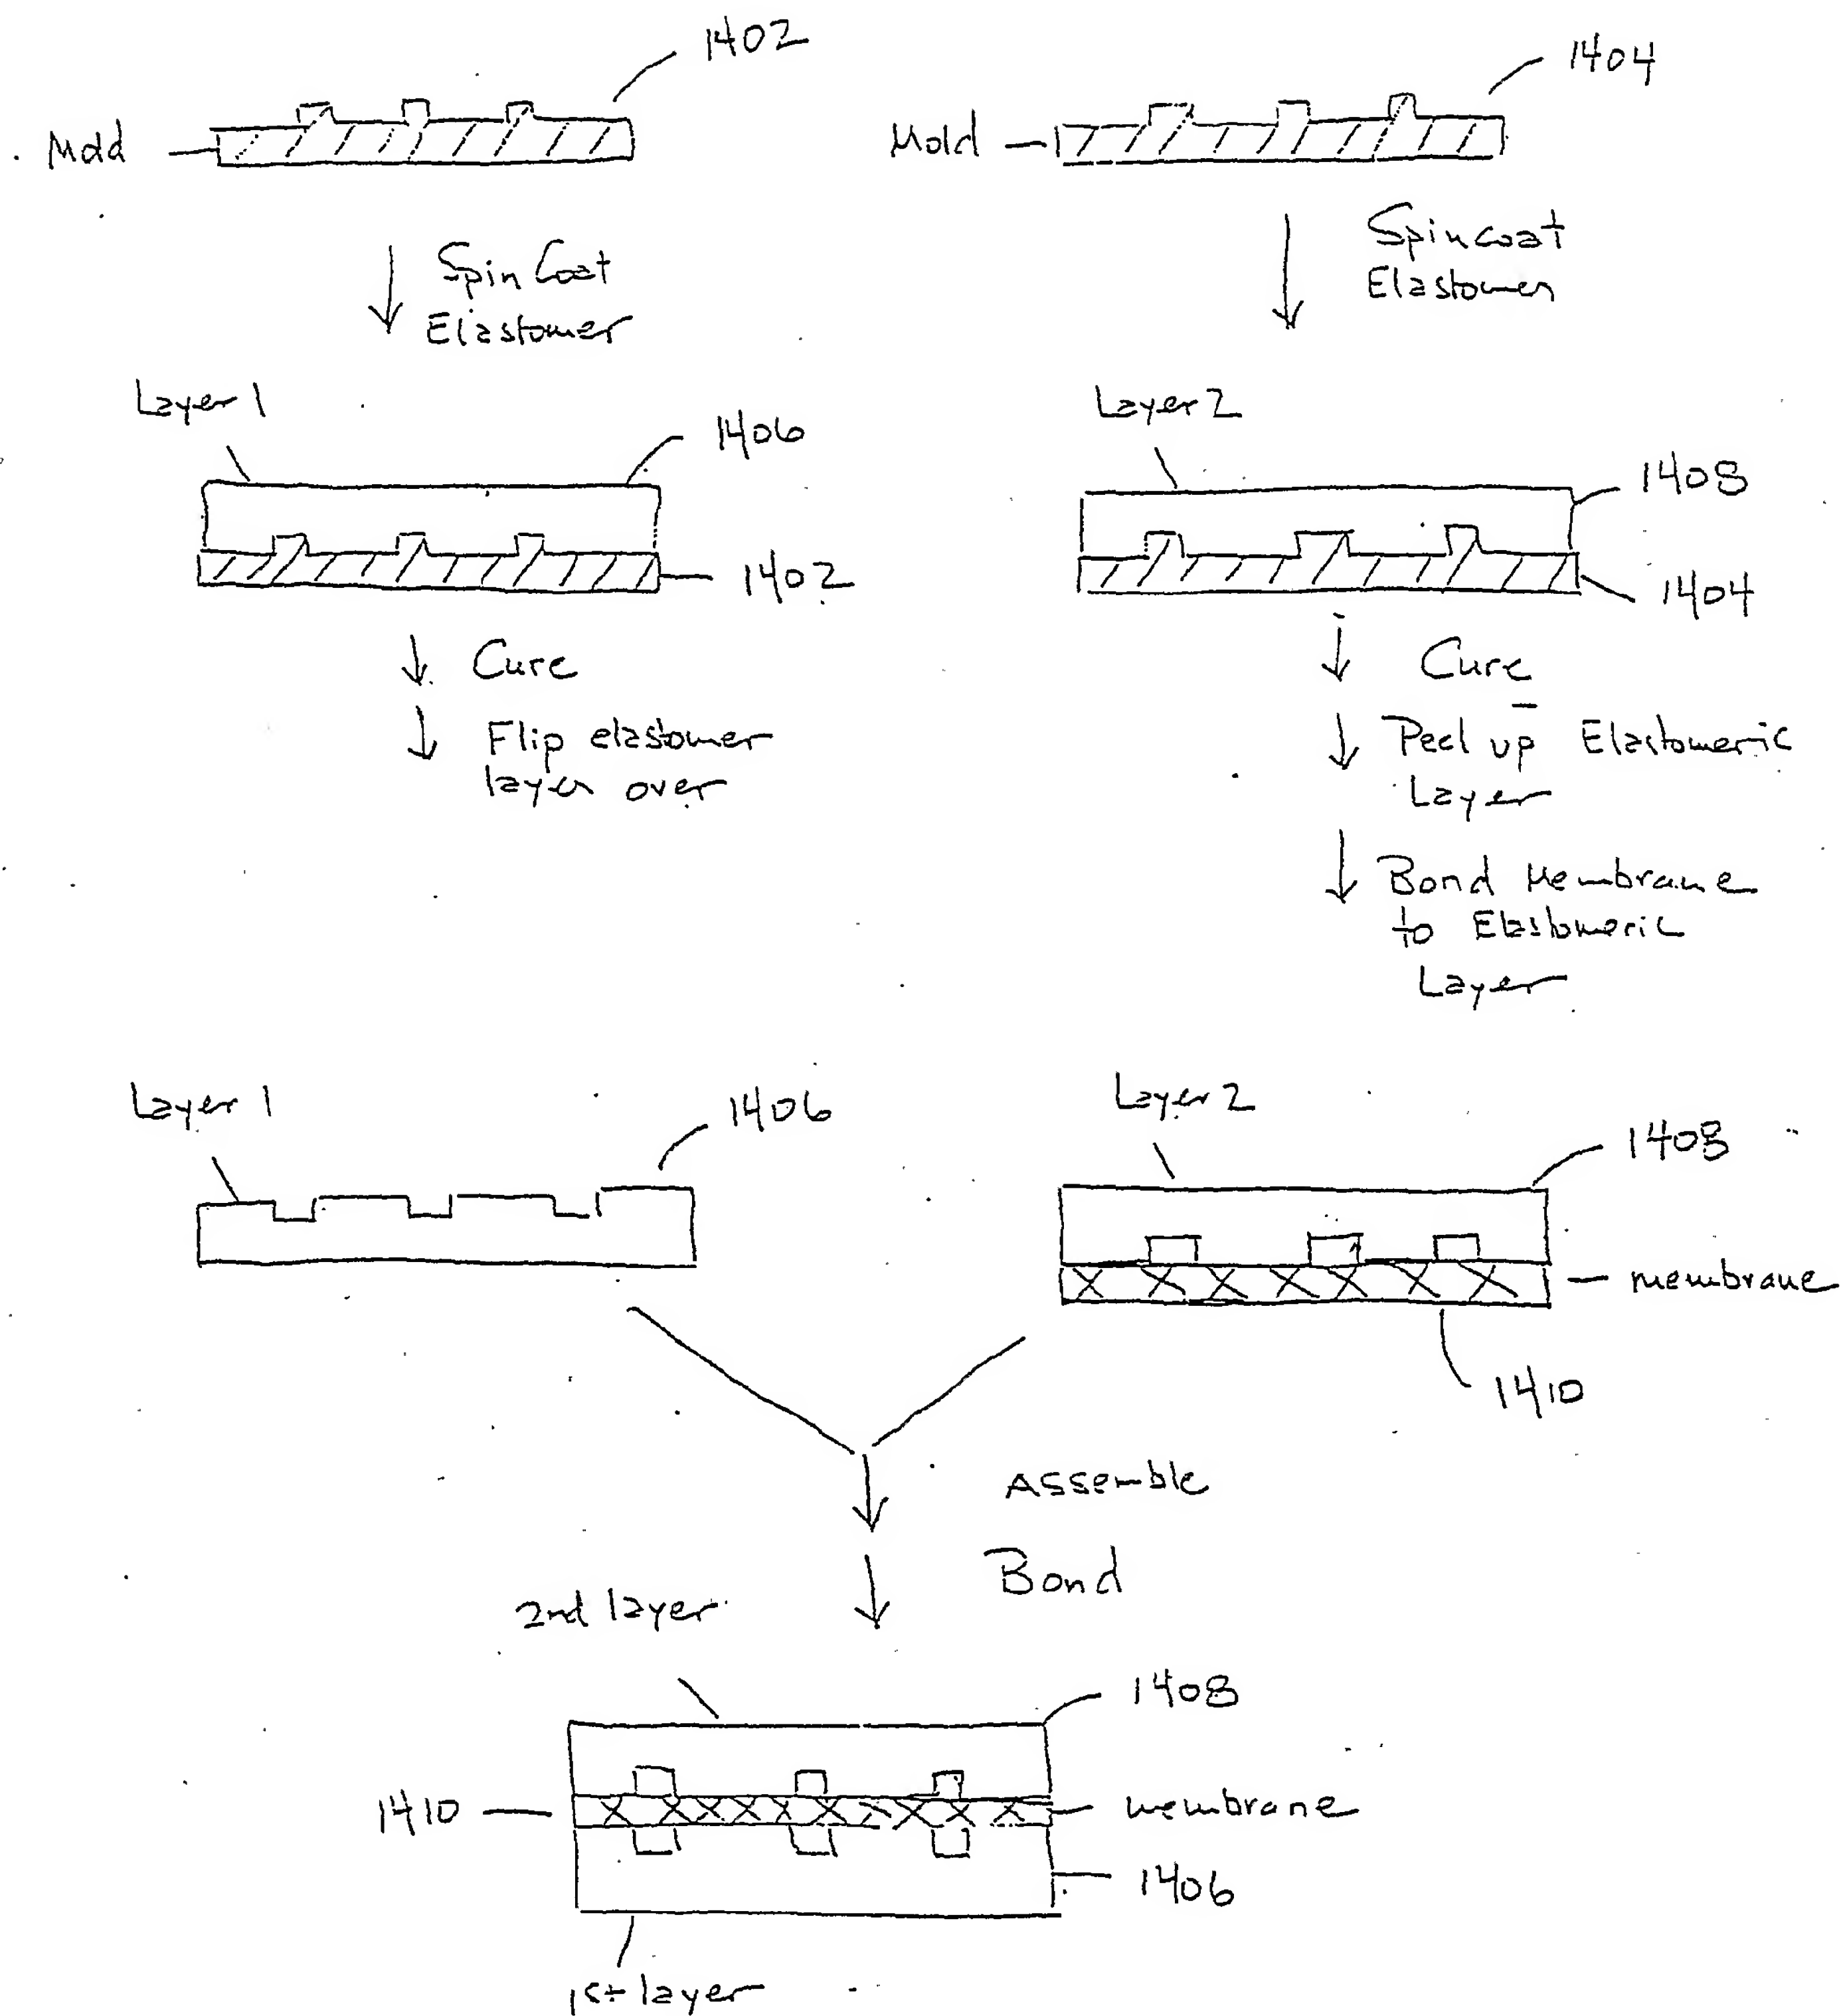 1402
1404
Mold
Mold
Spin Coat
Elastomer
Spin coat
Elastomer
Layer 1
1406
Layer 2
1408
1402
1404
Cure
Flip elastomer
layer over
Cure
Peel up Elastomeric
Layer
Bond Membrane
to Elastomeric
Layer
Layer 1
1406
Layer 2
1408
membrane
1410
Assemble
Bond
2nd layer
1408
1410
membrane
1406
1st layer